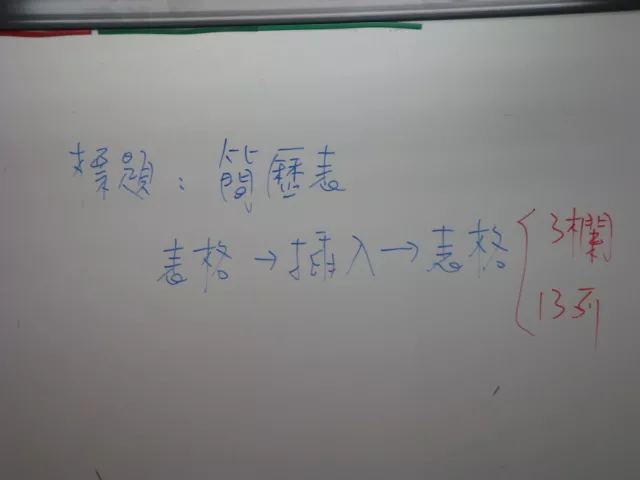 標題：簡歷表
表格→插入→表格{3欄
13列